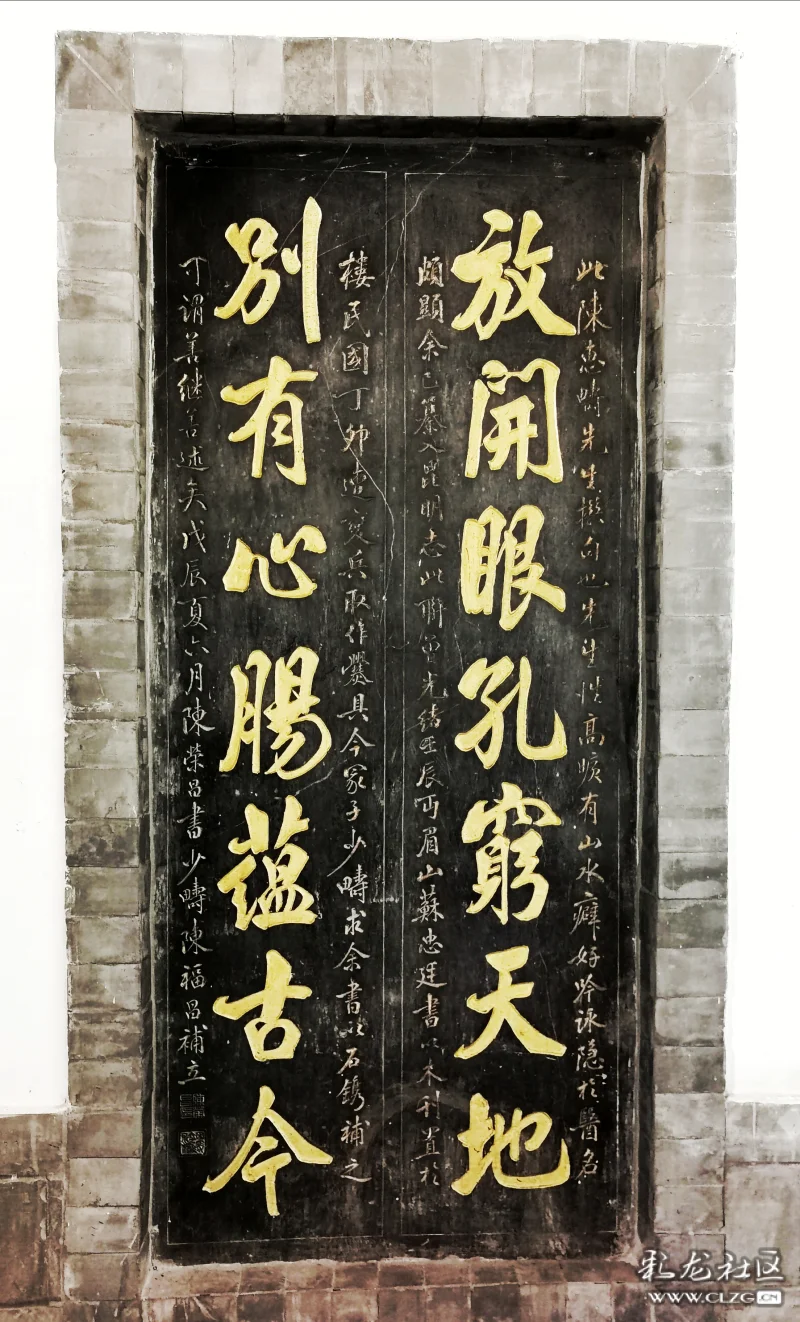 此陳惠疇先生撰句也先生性高曠有山水癖好吟詠隱於醫名
放開眼孔窮天地
頗顯余已纂入昆明志此聯曾光緒壬辰丐眉山蘇忠廷書以木刊置於
樓民國丁卯遭變兵取作爨具今冢子少疇求余書以石鐫補之
別有心腸蘊古今
可谓善继善述矣戊辰夏六月陳榮昌書少疇陳福昌補立
彩龙社区
WWW.CLZG.CN